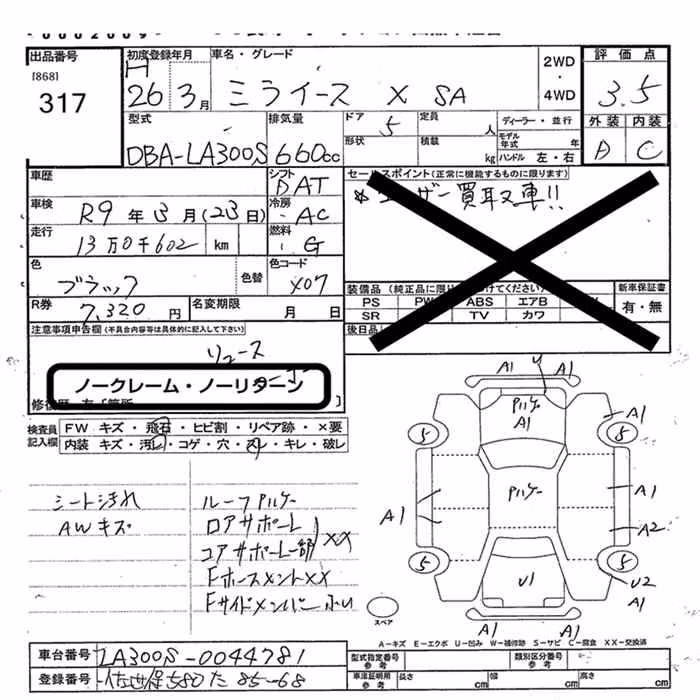 出品番号
[868]
317
初度登録年月
H
26 3月
車名・グレード
ミライース X SA
2WD
・
4WD
評価点
3.5
外装 内装
D C
型式
DBA-LA300S
排気量
660cc
ドア 5
形状
定員 人
積載 kg
ディーラー・並行
モデル年式 年
ハンドル 左・右
車歴
シフト
DAT
セールスポイント(正常に機能するものに限ります)
※ユーザー買取車!!
車検
R9年3月(23日)
冷房
AC
走行
13万0千602 km
燃料
G
色
ブラック
色替
色コード
X07
R券
7,320円
名変期限 月 日
装備品
PS PW ABS エアB
SR TV カワ
新車保証書
有・無
後日品
注意事項申告欄(不具合内容等は具体的に記入して下さい)
リユース
ノークレーム・ノーリターン
検査員
記入欄
FW キズ・飛石・ヒビ割・リペア跡・×要
内装 キズ・汚れ・コゲ・穴・スリ・キレ・破レ
シート汚れ
AWキズ
ルーフPハゲ
ロアサポーL
コアサポーL一部
XX
FホースメントXX
Fサイドメンバー小い
A1 U
A1 A1
Pハゲ
A1
5 5
Pハゲ
A1
A1
A2
5 5
U1
U2
A1
A1 A1
スペア
A-キズ E-エクボ U-凹み W-補修跡 S-サビ C-腐食 XX-交換済
車台番号
LA300S-0044781
登録番号
佐世保580た85-68
型式指定番号
参考
類別区分番号
参考
車庫証明用
参考
長さ cm
幅 cm
高さ cm